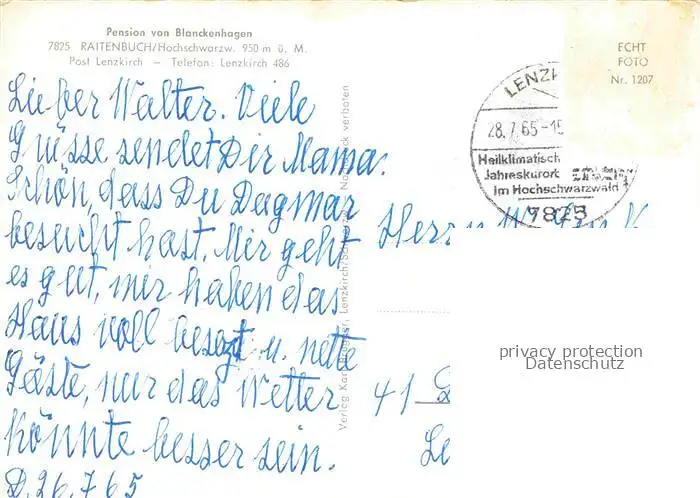 Pension von Blanckenhagen
7825 RAITENBUCH/Hochschwarzw. 950 m ü. M.
Post Lenzkirch – Telefon: Lenzkirch 486
ECHT
FOTO
Nr. 1207
LENZK
28.7.65-15
Heilklimatisch
Jahreskurort
im Hochschwarzwald
7825
Lieber Walter. Viele
Grüsse sendet Dir Mama.
Schön, dass Du Dagmar
besucht hast. Mir geht
es gut, mir haben das
Haus voll besezt u. nette
Gäste, nur das Wetter
könnte besser sein.
D. 26.7.65
Herrn
41
Le
Nachdruck verboten
Verlag Karl Lenzkirch/Schwarzw.
privacy protection
Datenschutz